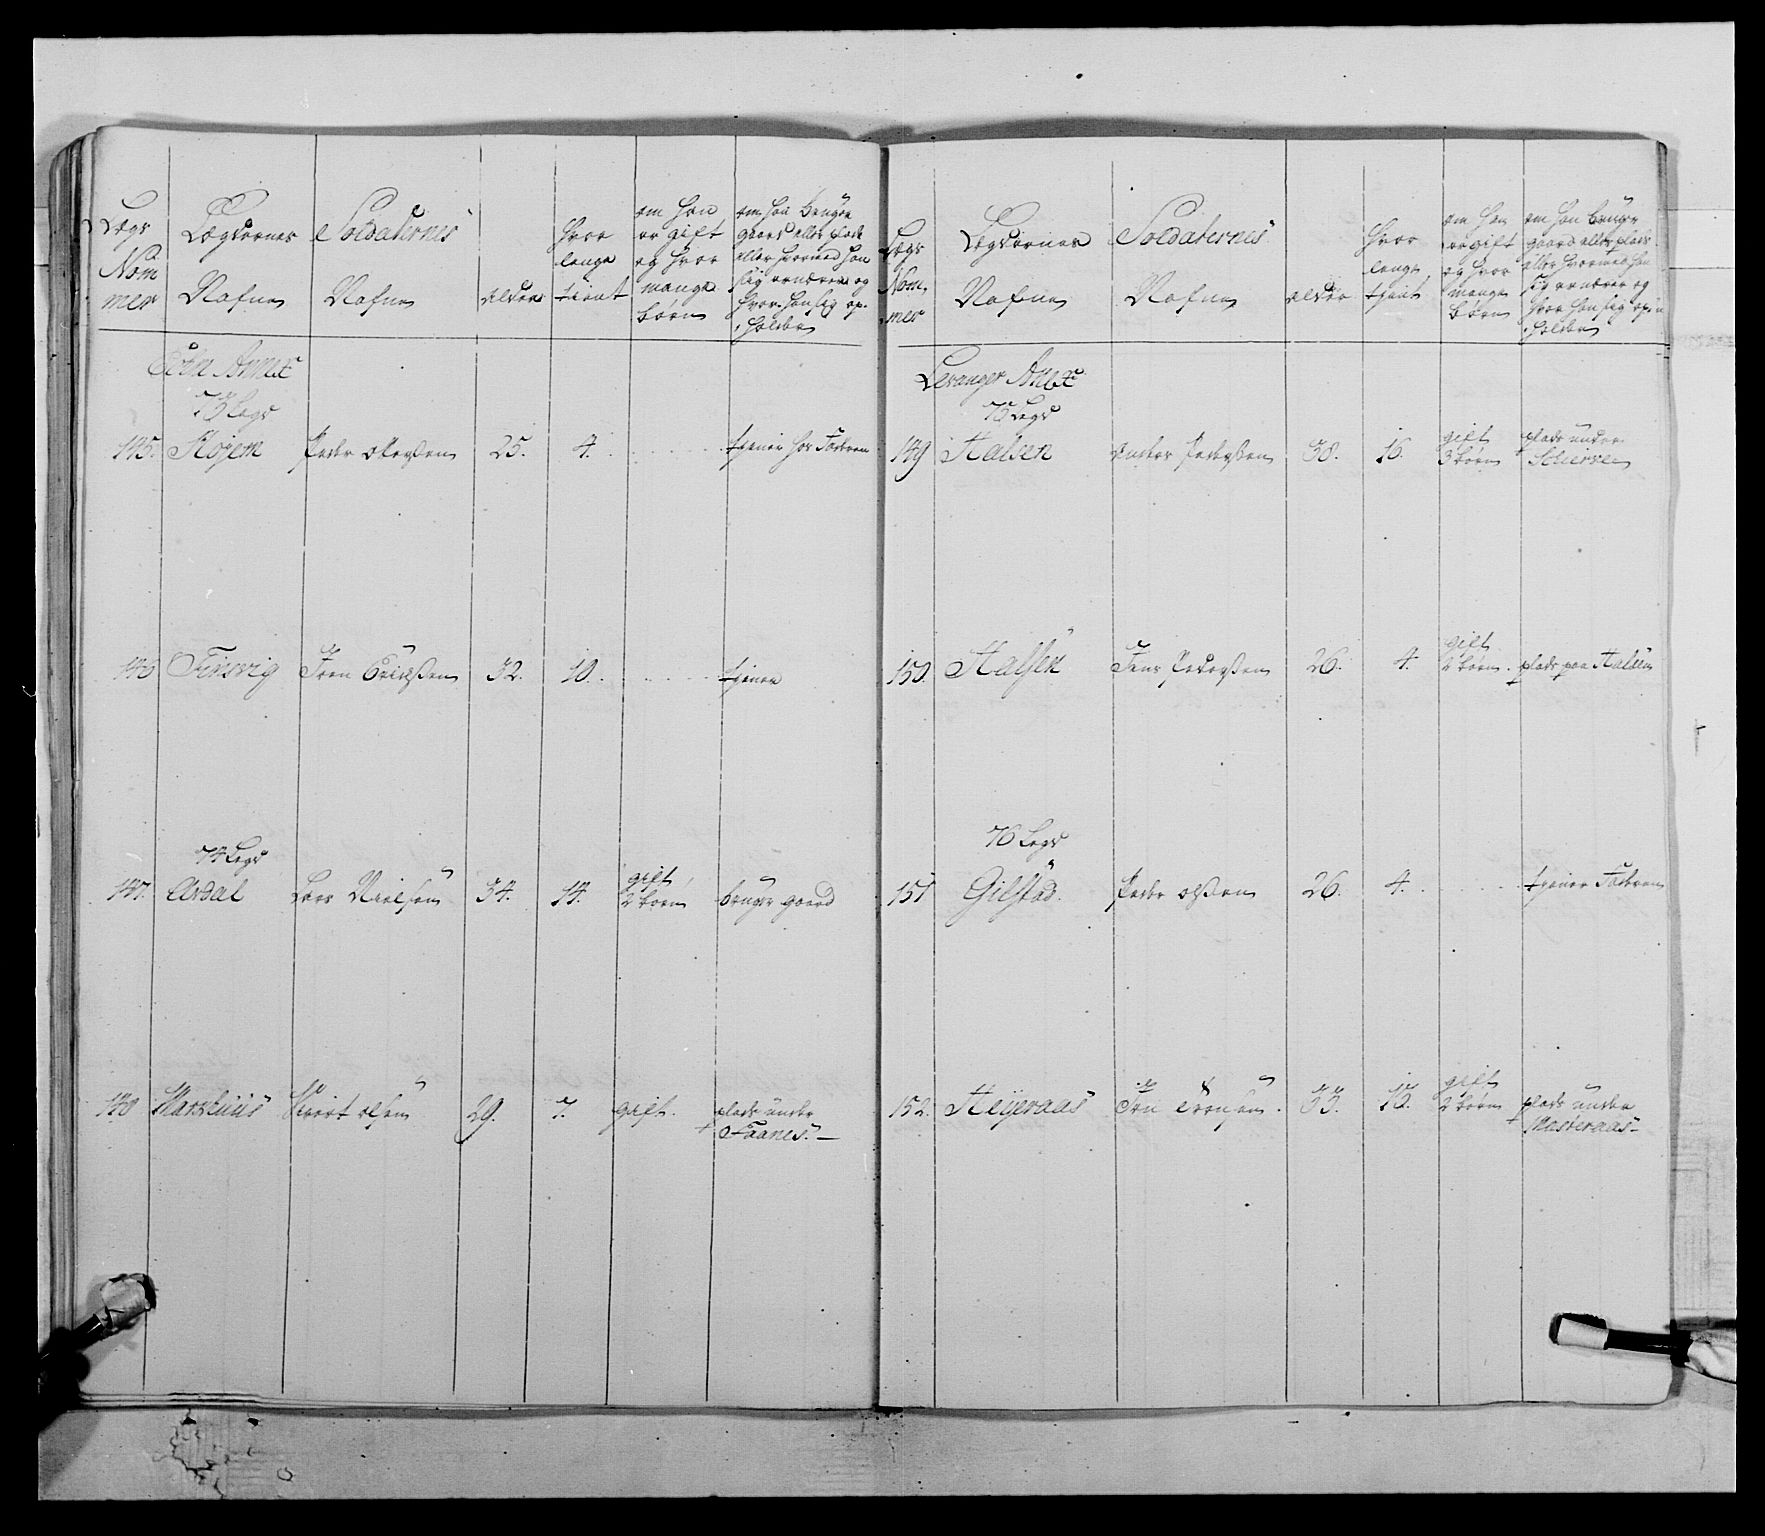 Lægs Nom mer
Lægdernes Nafne
Soldaternes Nafne
alder
hvor lenge tient
om han er gift og hvor mange börn
om han bruger gaard eller plads eller hvormed han sig ernærer og hvor han sig op- holder
Annex
73 Legd
145. Röjem Peder 25. 4. tjener hos Faderen
146 Finsvig Iven Erichsen 32. 10. tjener
74 Legd
147. Ardal Lars Nielsen 34. 14. gift 2 börn bruger gaard
148 Marchuus Sivert olsen 29. 7. gift. plads under Faanes.
Lægs Nom mer
Lægdernes Nafne
Soldaternes Nafne
alder
hvor lenge tient
om han er gift og hvor mange börn
om han bruger gaard eller plads eller hvormed han sig ernærer og hvor han sig op- holder
Levanger
75 Legd
149 Halsen Anders Pedersen 38. 16. gift 3 börn plads under
150. Halsen Jens Pedersen 26. 4. gift 2 börn. plads paa Halsen
76 Legd
151 Gilstad. Peder olsen 26. 4. tjener Faderen
152. Heijeraas Jon 33. 15. gift 2 börn plads under